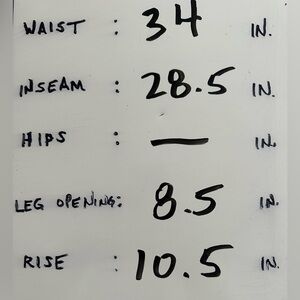 WAIST : 34 IN.
INSEAM : 28.5 IN.
HIPS : — IN.
LEG OPENING: 8.5 IN.
RISE : 10.5 IN.